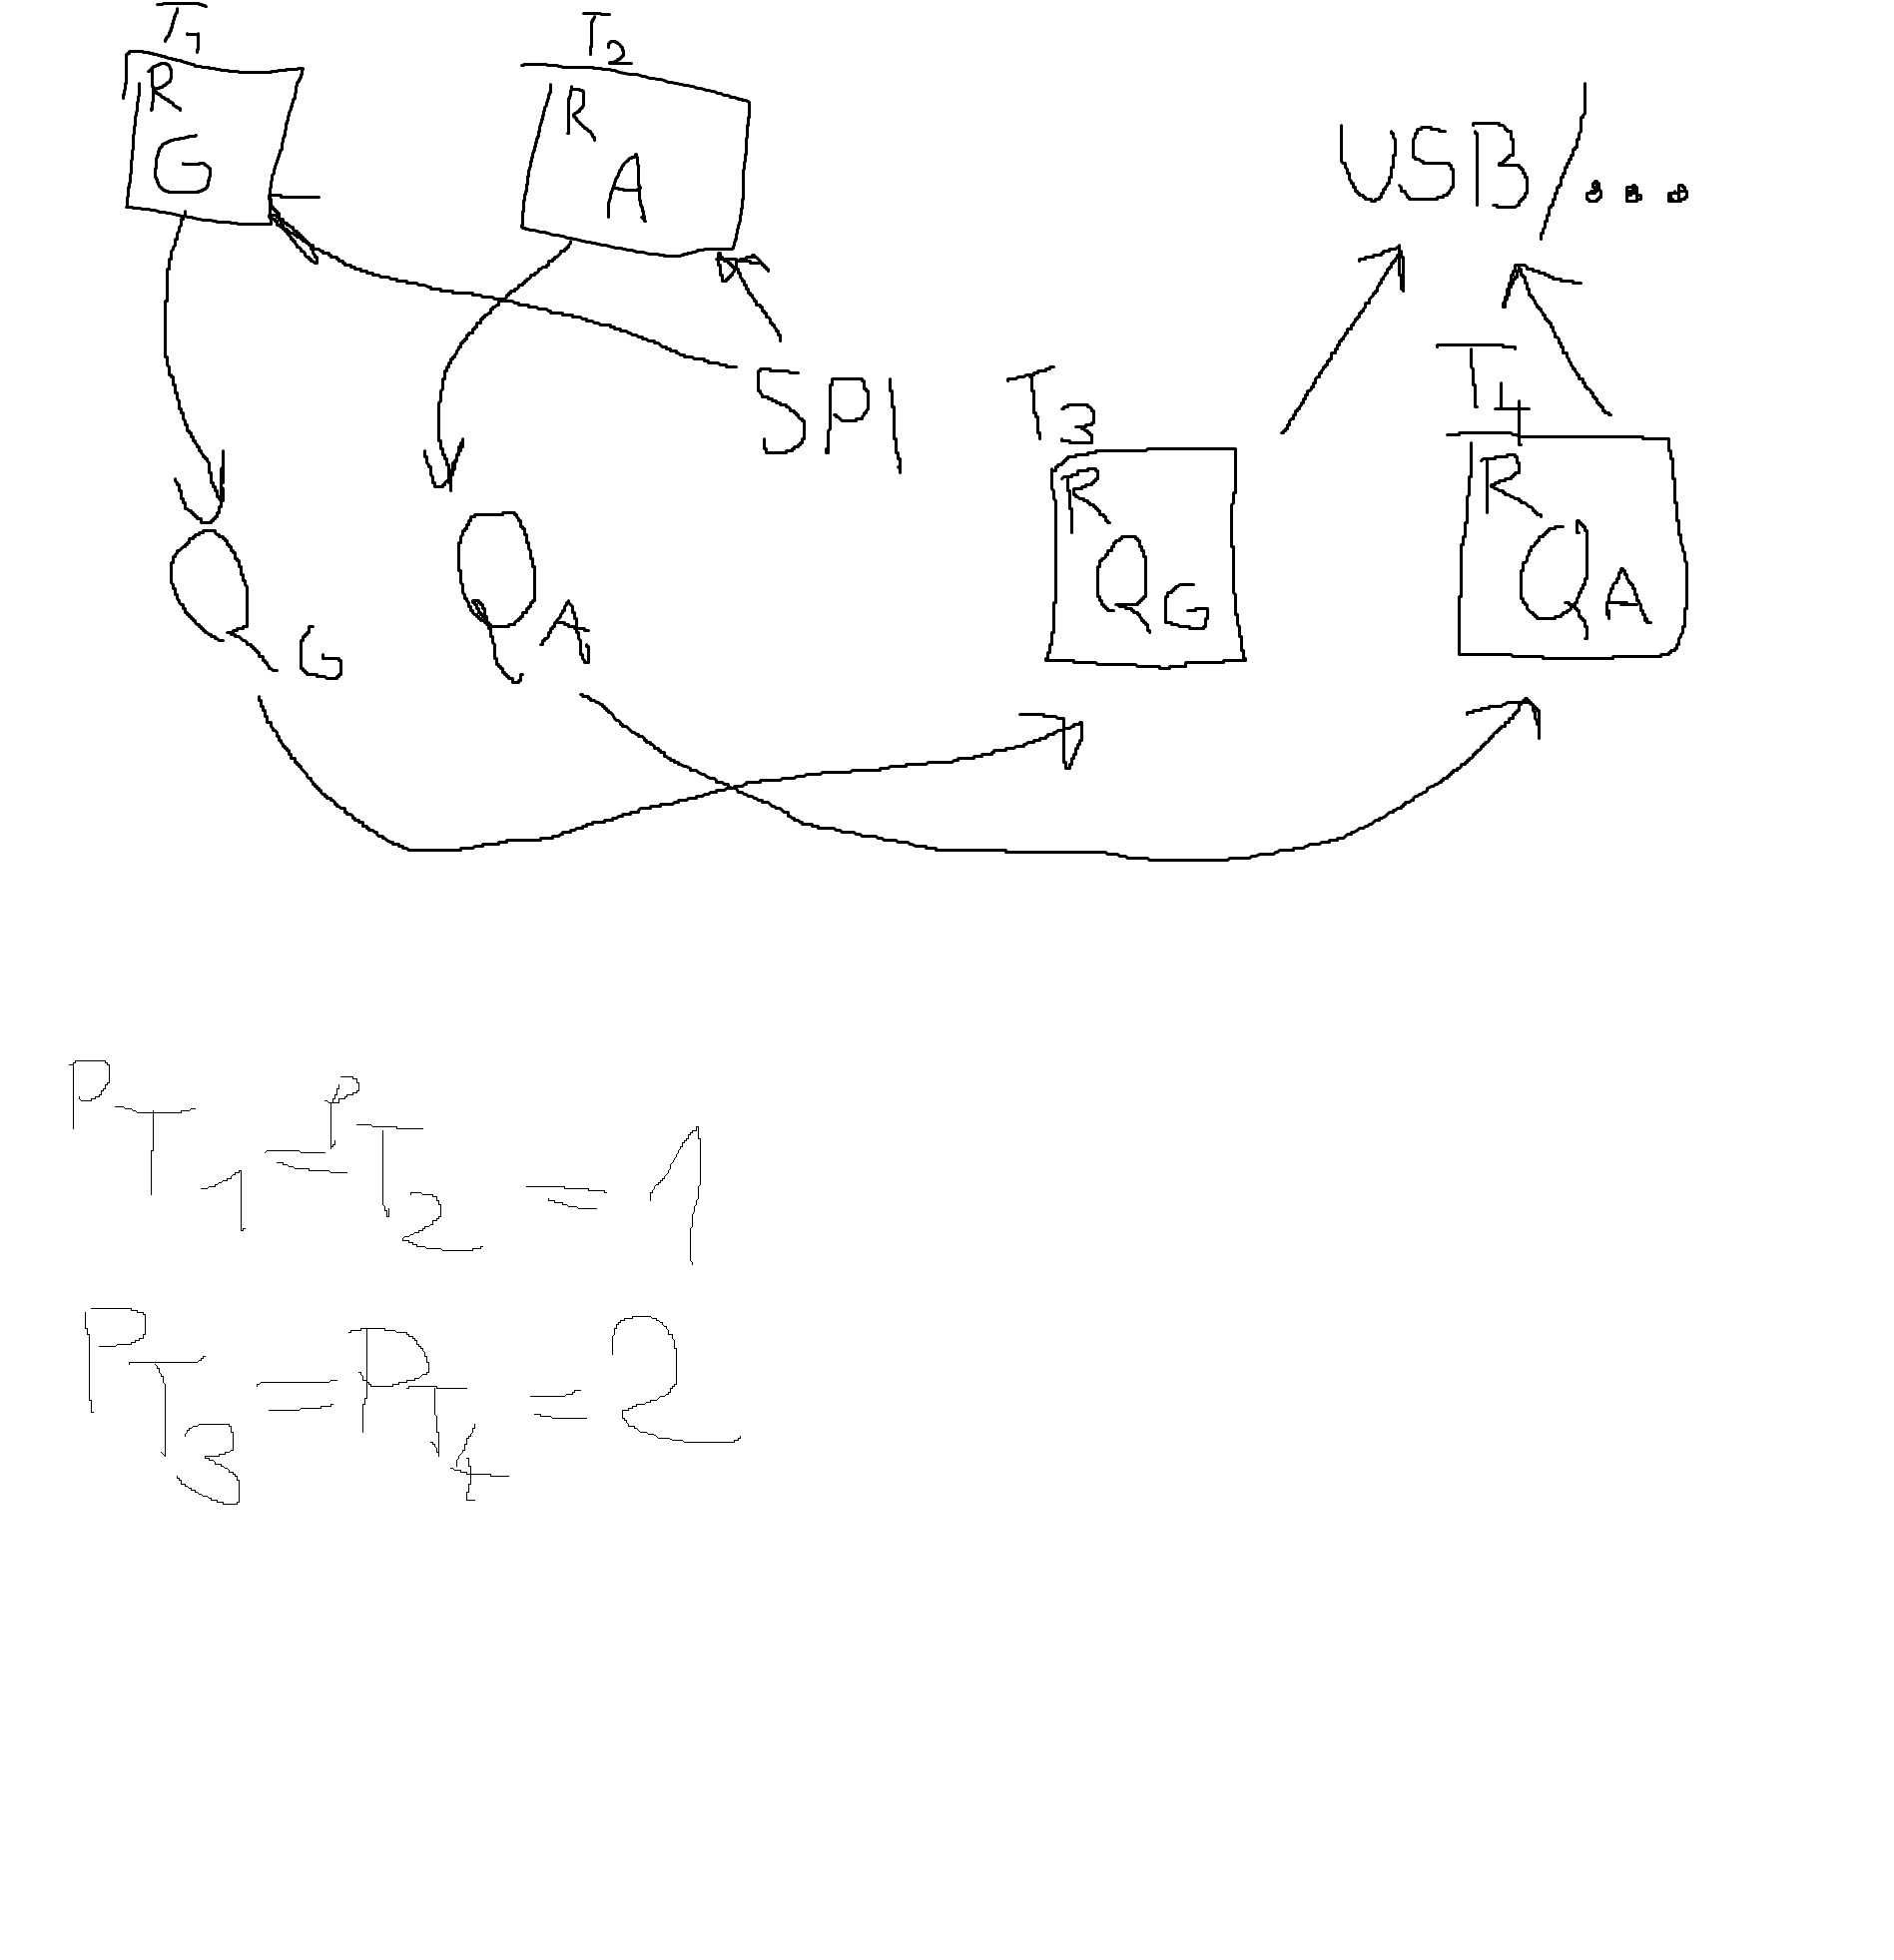 T1
T2
R
G
R
A
USB/...
SPI
T3
T4
R
QG
R
QA
QG
QA
PT1 = PT2 = 1
PT3 = PT4 = 2